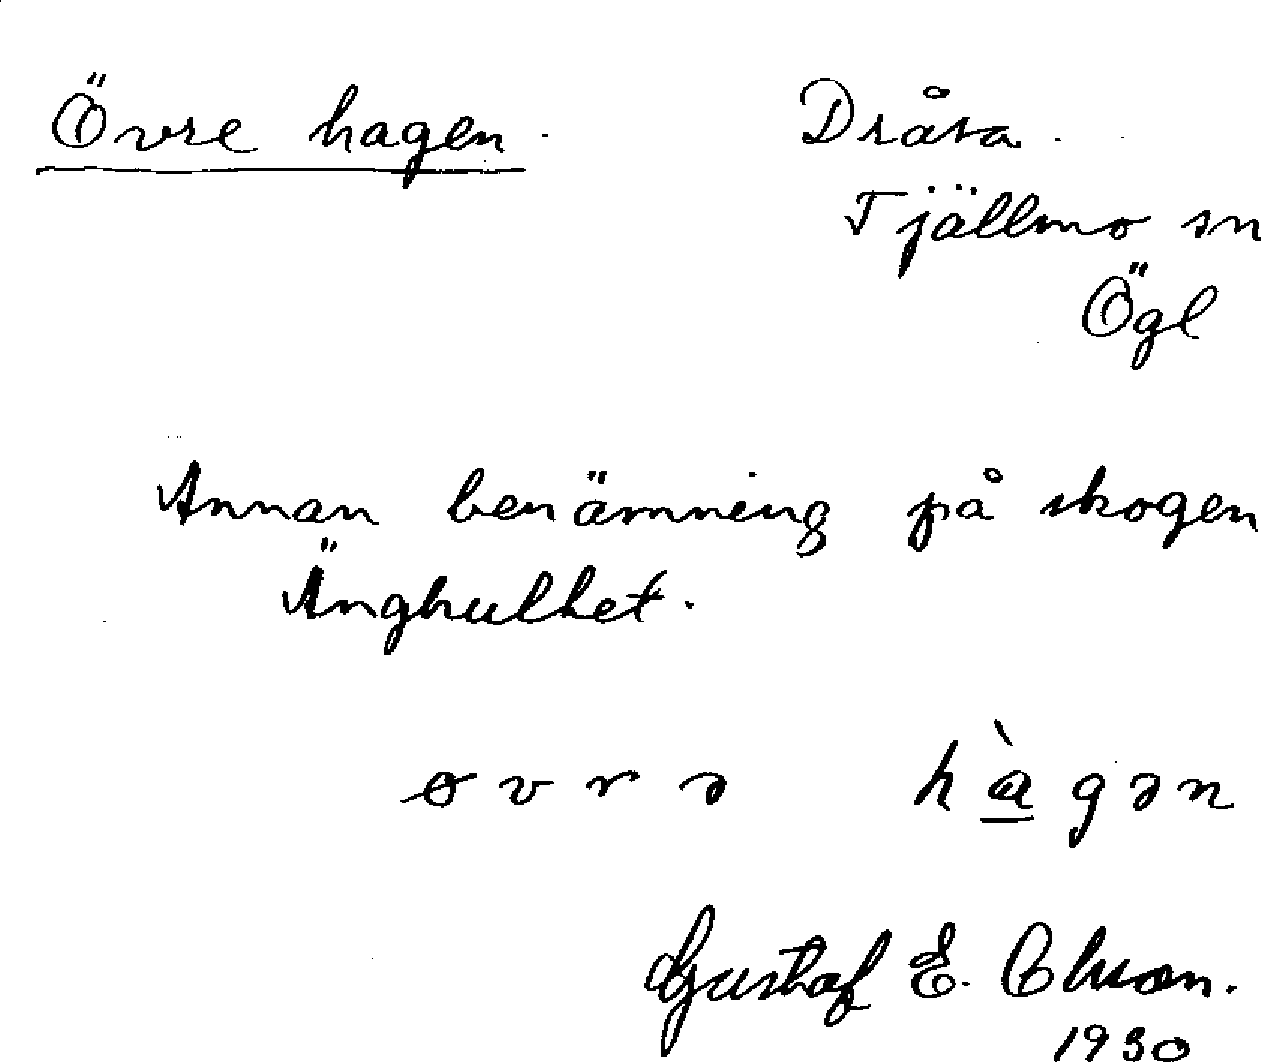 Övre hagen.
Dråsa.
Tjällmo sn
Ögl
Annan benämning på skogen
Ängkullet.
øvrə hàgən
Gustaf E. Olsson.
1930